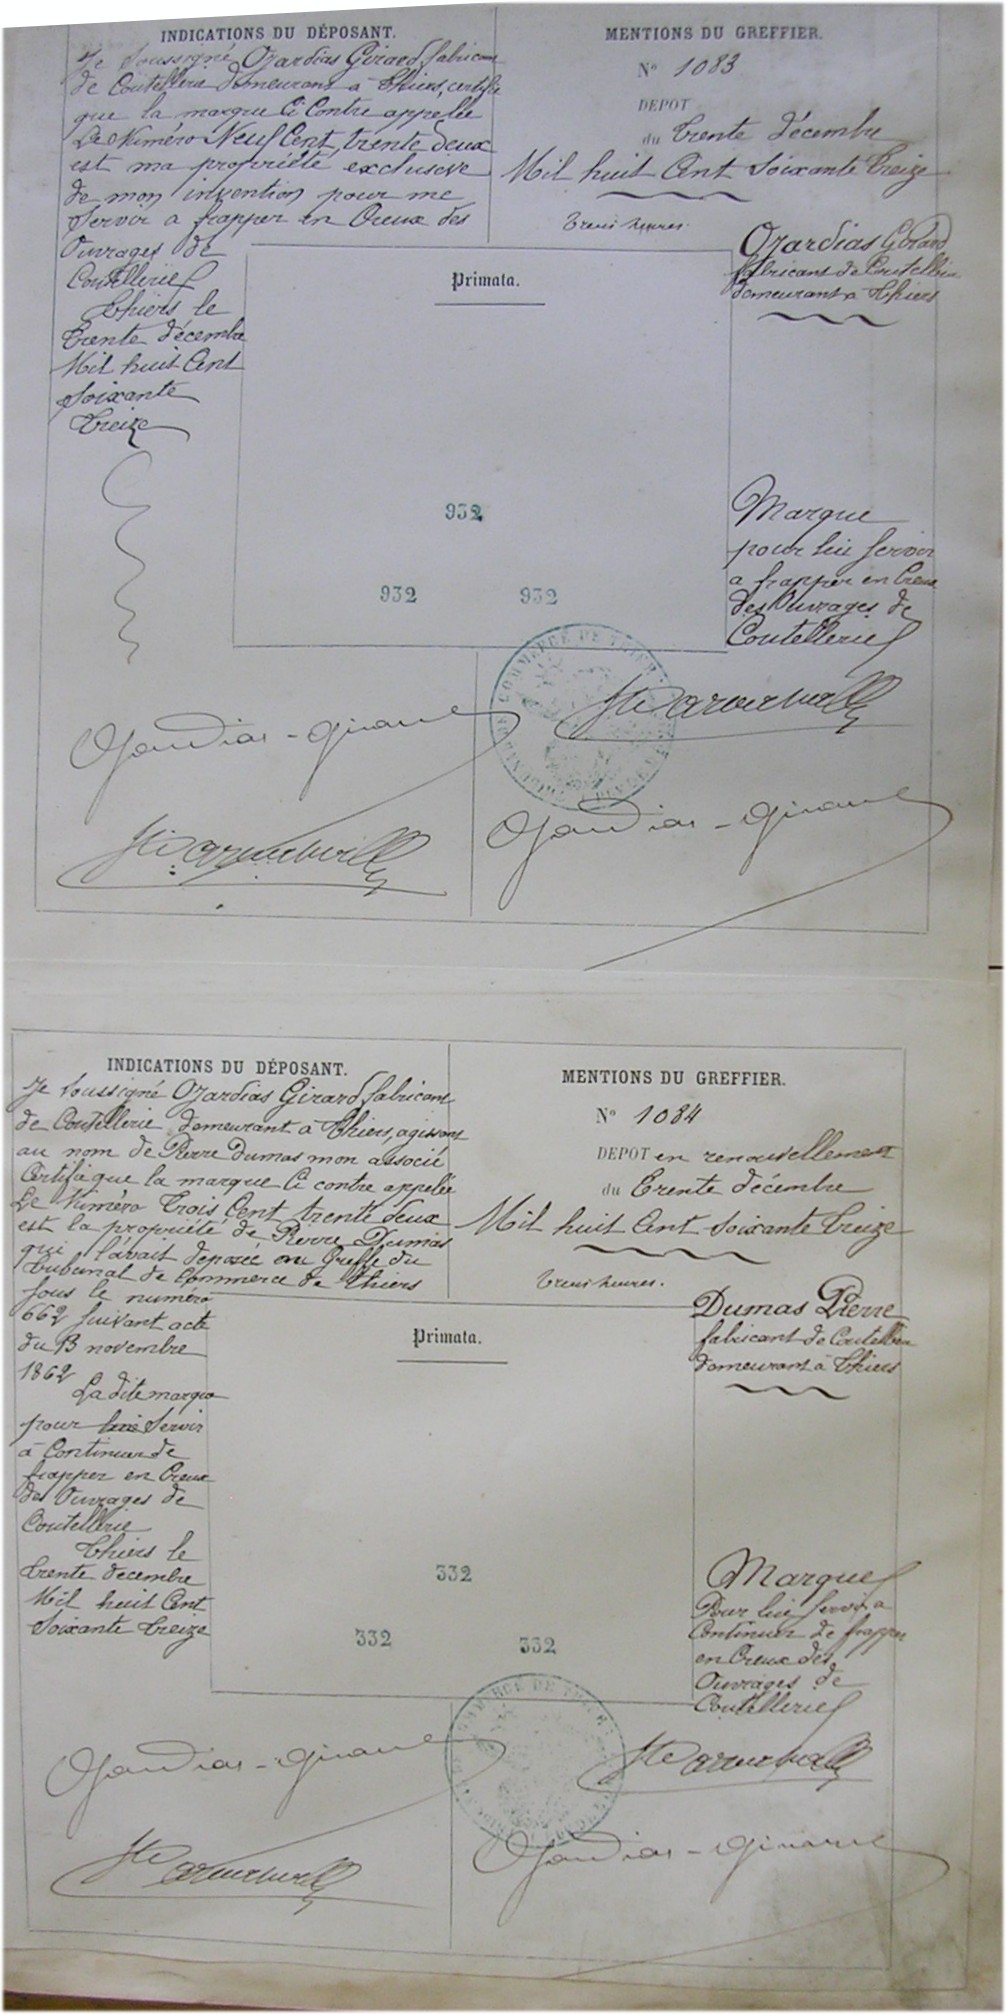 INDICATIONS DU DÉPOSANT.
Je soussigné Ojardias Girard fabricant
de Coutellerie demeurant à Thiers, certifie
que la marque Ci Contre appelée
Le Numéro Neuf Cent trente deux
est ma propriété exclusive
de mon invention pour me
Servir a frapper en Creux des
Ouvrages de
Coutellerie
Thiers le
trente décembre
Mil huit Cent
Soixante
treize
MENTIONS DU GREFFIER.
N° 1083
DEPOT
du trente décembre
Mil huit Cent Soixante treize
trois heures.
Ojardias Girard
fabricant de Coutellerie
demeurant a Thiers
Primata.
932
932 932
Marque
pour lui Servir
a frapper en Creux
des Ouvrages de
Coutellerie
Ojardias-Girard
Ojardias-Girard
INDICATIONS DU DÉPOSANT.
Je soussigné Ojardias Girard fabricant
de Coutellerie demeurant à Thiers, agissant
au nom de Pierre Dumas mon associé
Certifie que la marque Ci contre appelée
Le Numéro Trois Cent trente deux
est la propriété de Pierre Dumas
qui l'avait deposée au Greffe du
tribunal de Commerce de Thiers
sous le numéro
662 suivant acte
du 13 novembre
1862
La dite marque
pour lui Servir
à Continuer de
frapper en Creux
des Ouvrages de
Coutellerie
Thiers le
trente decembre
Mil huit Cent
Soixante treize
MENTIONS DU GREFFIER.
N° 1084
DEPOT en renouvellement
du trente décembre
Mil huit Cent Soixante treize
trois heures.
Dumas Pierre
fabricant de Coutellerie
demeurant à Thiers
Primata.
332
332 332
Marque
Pour lui Servir a
Continuer de frapper
en Creux des
Ouvrages de
Coutellerie
Ojardias-Girard
Ojardias-Girard